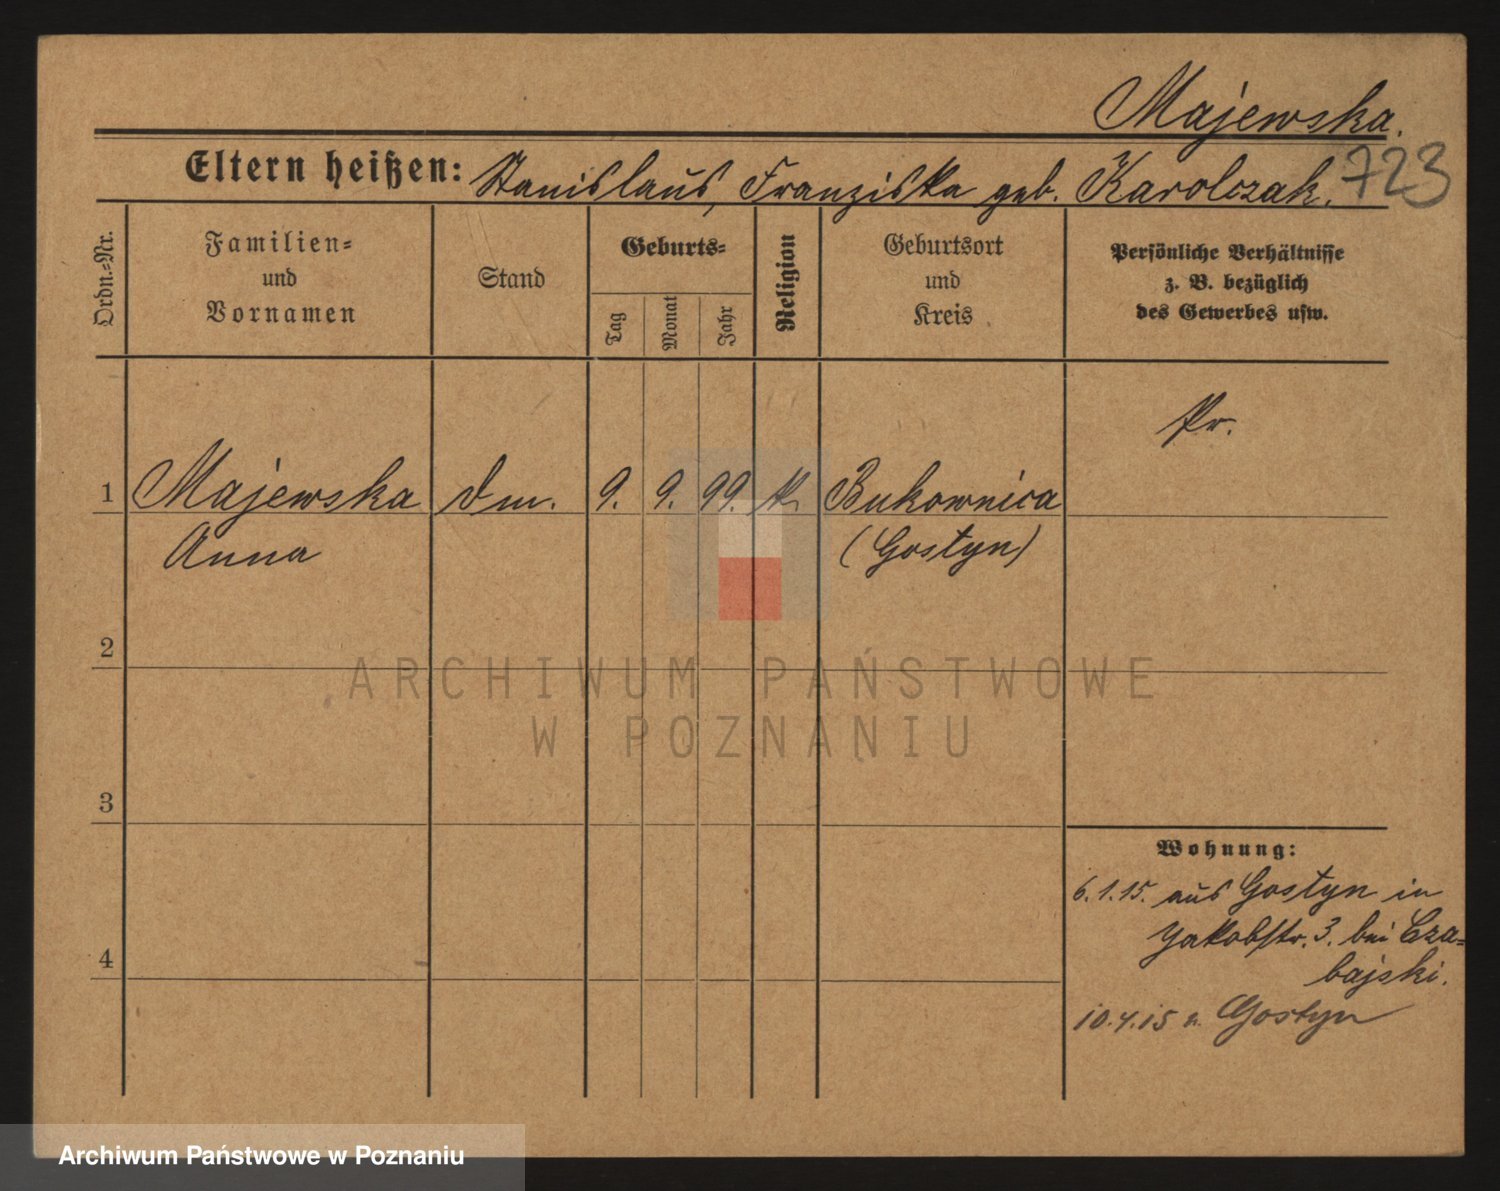 Majewska.
Eltern heißen: Stanislaus, Franziska geb. Karolczak.
723
Ordn.-Nr.
Familien-
und
Vornamen
Stand
Geburts-
Tag
Monat
Jahr
Religion
Geburtsort
und
Kreis
Persönliche Verhältnisse
z. B. bezüglich
des Gewerbes usw.
Pr.
1 Majewska Dm. 9. 9. 99. k. Bukownica
Anna (Gostyn)
2
ARCHIWUM PAŃSTWOWE
W POZNANIU
3
Wohnung:
6.1.15. aus Gostyn in
Jakobstr. 3. bei Cza-
bajski.
4
10.4.15 n. Gostyn
Archiwum Państwowe w Poznaniu